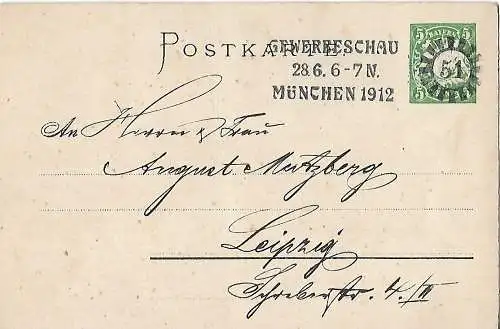 POSTKARTE.
GEWERBESCHAU
28.6. 6-7 N.
MÜNCHEN 1912
5 BAYERN 5
51
5 5
An Herrn & Frau
August Mutzberg
Leipzig
Schreberstr. 4/III